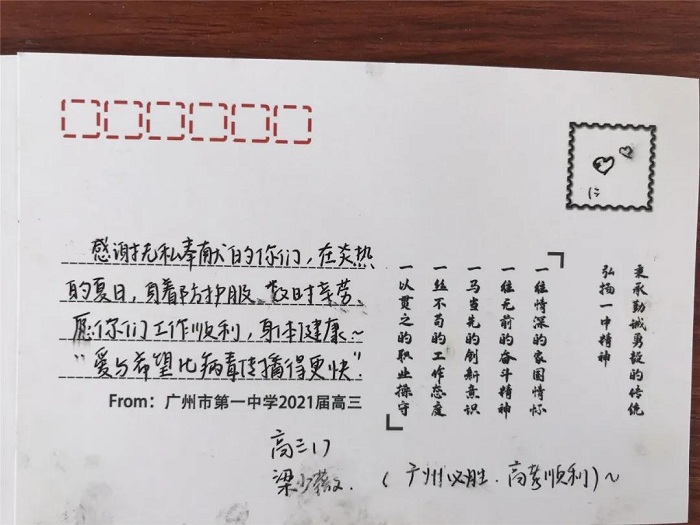 感谢无私奉献的你们，在炎热
的夏日，身着防护服、数日时辛劳。
愿你们工作顺利，身体健康～
“爱与希望比病毒传播得更快”
From：广州市第一中学2021届高三
高三17
梁少薇．（广州必胜．高考顺利）～
秉承勤诚勇毅的传统
弘扬一中精神
一往情深的家国情怀
一往无前的奋斗精神
一马当先的创新意识
一丝不苟的工作态度
一以贯之的职业操守